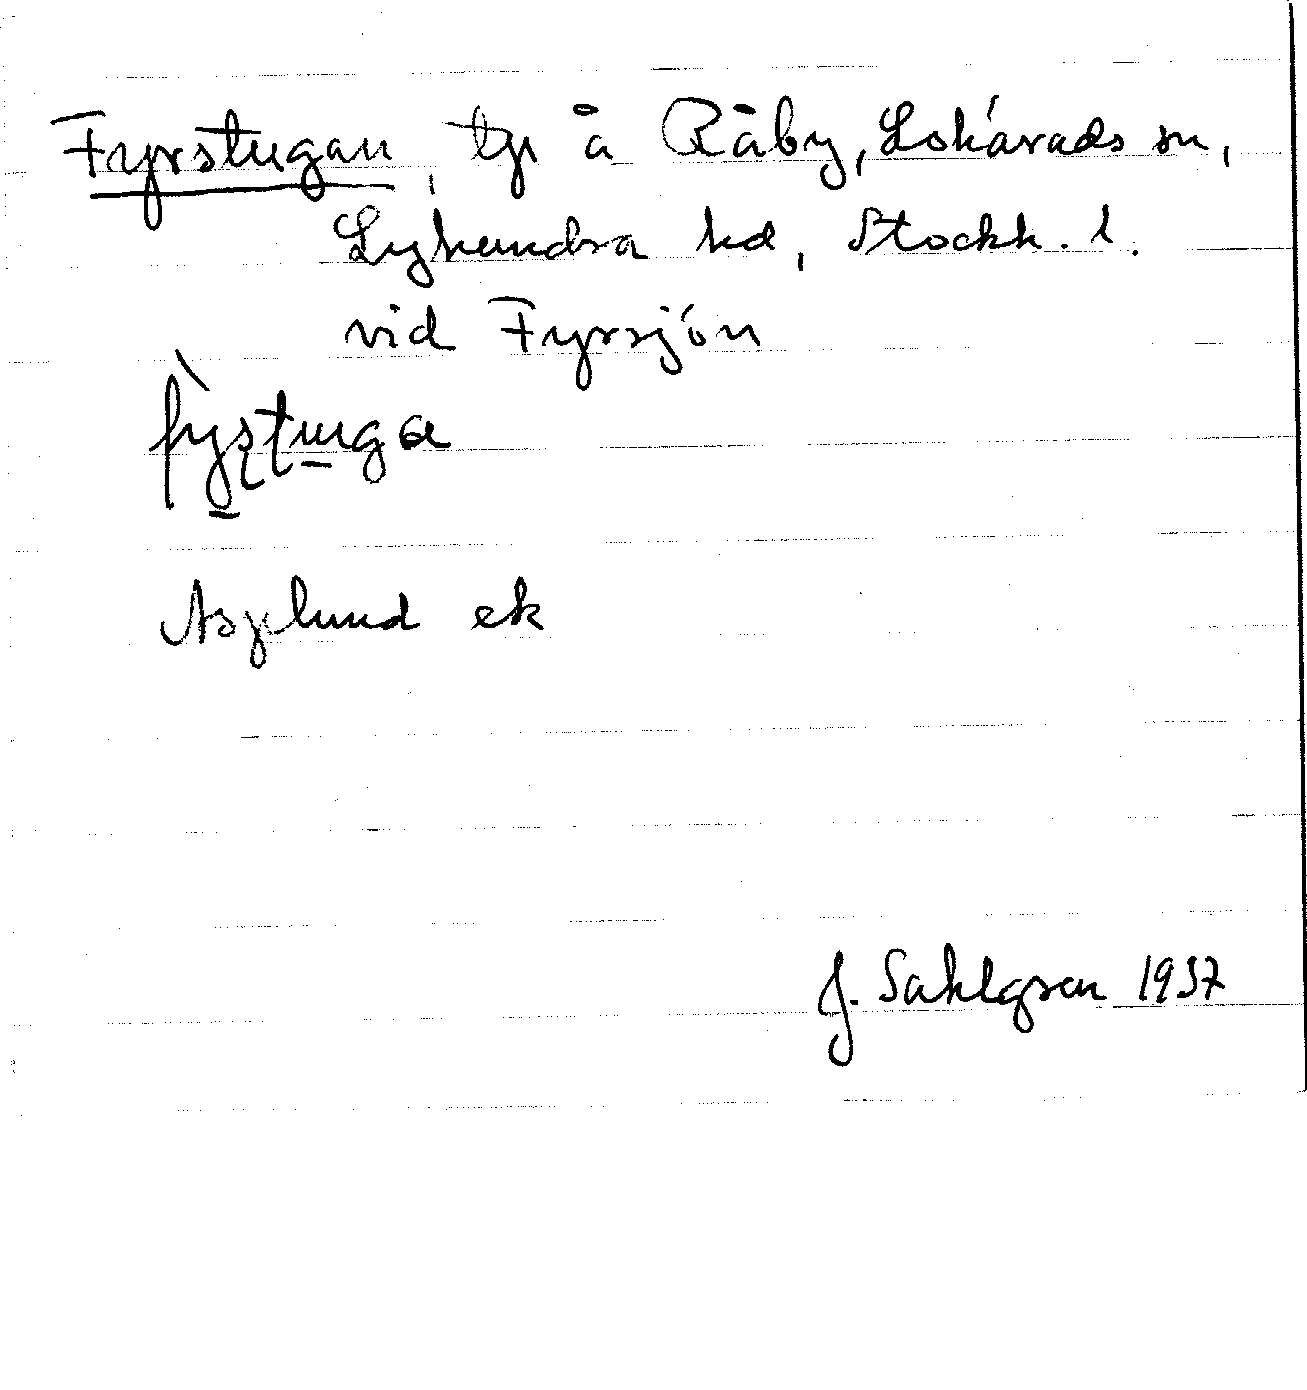 Fyrstugan, tp å Råby, Lohärads sn,
Lyhundra hd, Stockh. l.
vid Fyrsjön
Asplund ek
J. Sahlgren 1937